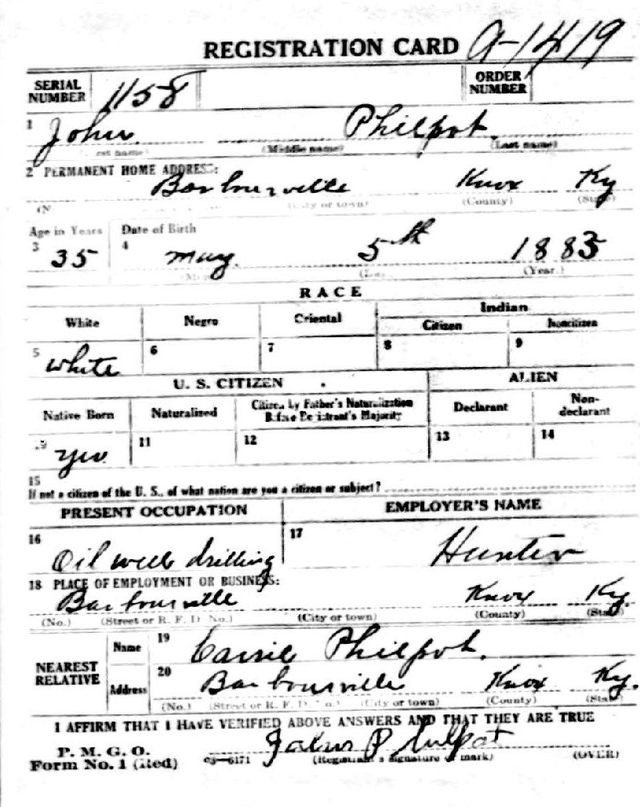 REGISTRATION CARD A-1419
SERIAL NUMBER 1158 ORDER NUMBER
1 John Philpot
(Middle name) (Last name)
2 PERMANENT HOME ADDRESS:
Barbourville Knox Ky
(City or town) (County) (State)
Age in Years Date of Birth
3 35 4 May 5th 1883
(Year.)
RACE
White Negro Oriental Indian
Citizen Noncitizen
5 White 6 7 8 9
U. S. CITIZEN ALIEN
Native Born Naturalized Citizen by Father's Naturalization Before Registrant's Majority Declarant Non-declarant
Yes 11 12 13 14
15
If not a citizen of the U. S., of what nation are you a citizen or subject?
PRESENT OCCUPATION EMPLOYER'S NAME
16 Oil well drilling 17 Hunter
18 PLACE OF EMPLOYMENT OR BUSINESS:
Barbourville Knox Ky.
(No.) (Street or R. F. D. No.) (City or town) (County) (State)
NEAREST RELATIVE
Name 19 Carrie Philpot.
Address 20 Barbourville Knox Ky.
(No.) (Street or R. F. D. No.) (City or town) (County) (State)
I AFFIRM THAT I HAVE VERIFIED ABOVE ANSWERS AND THAT THEY ARE TRUE
P. M. G. O.
Form No. 1 (Red) 03-6171 John Philpot
(Registrant's signature or mark) (OVER)